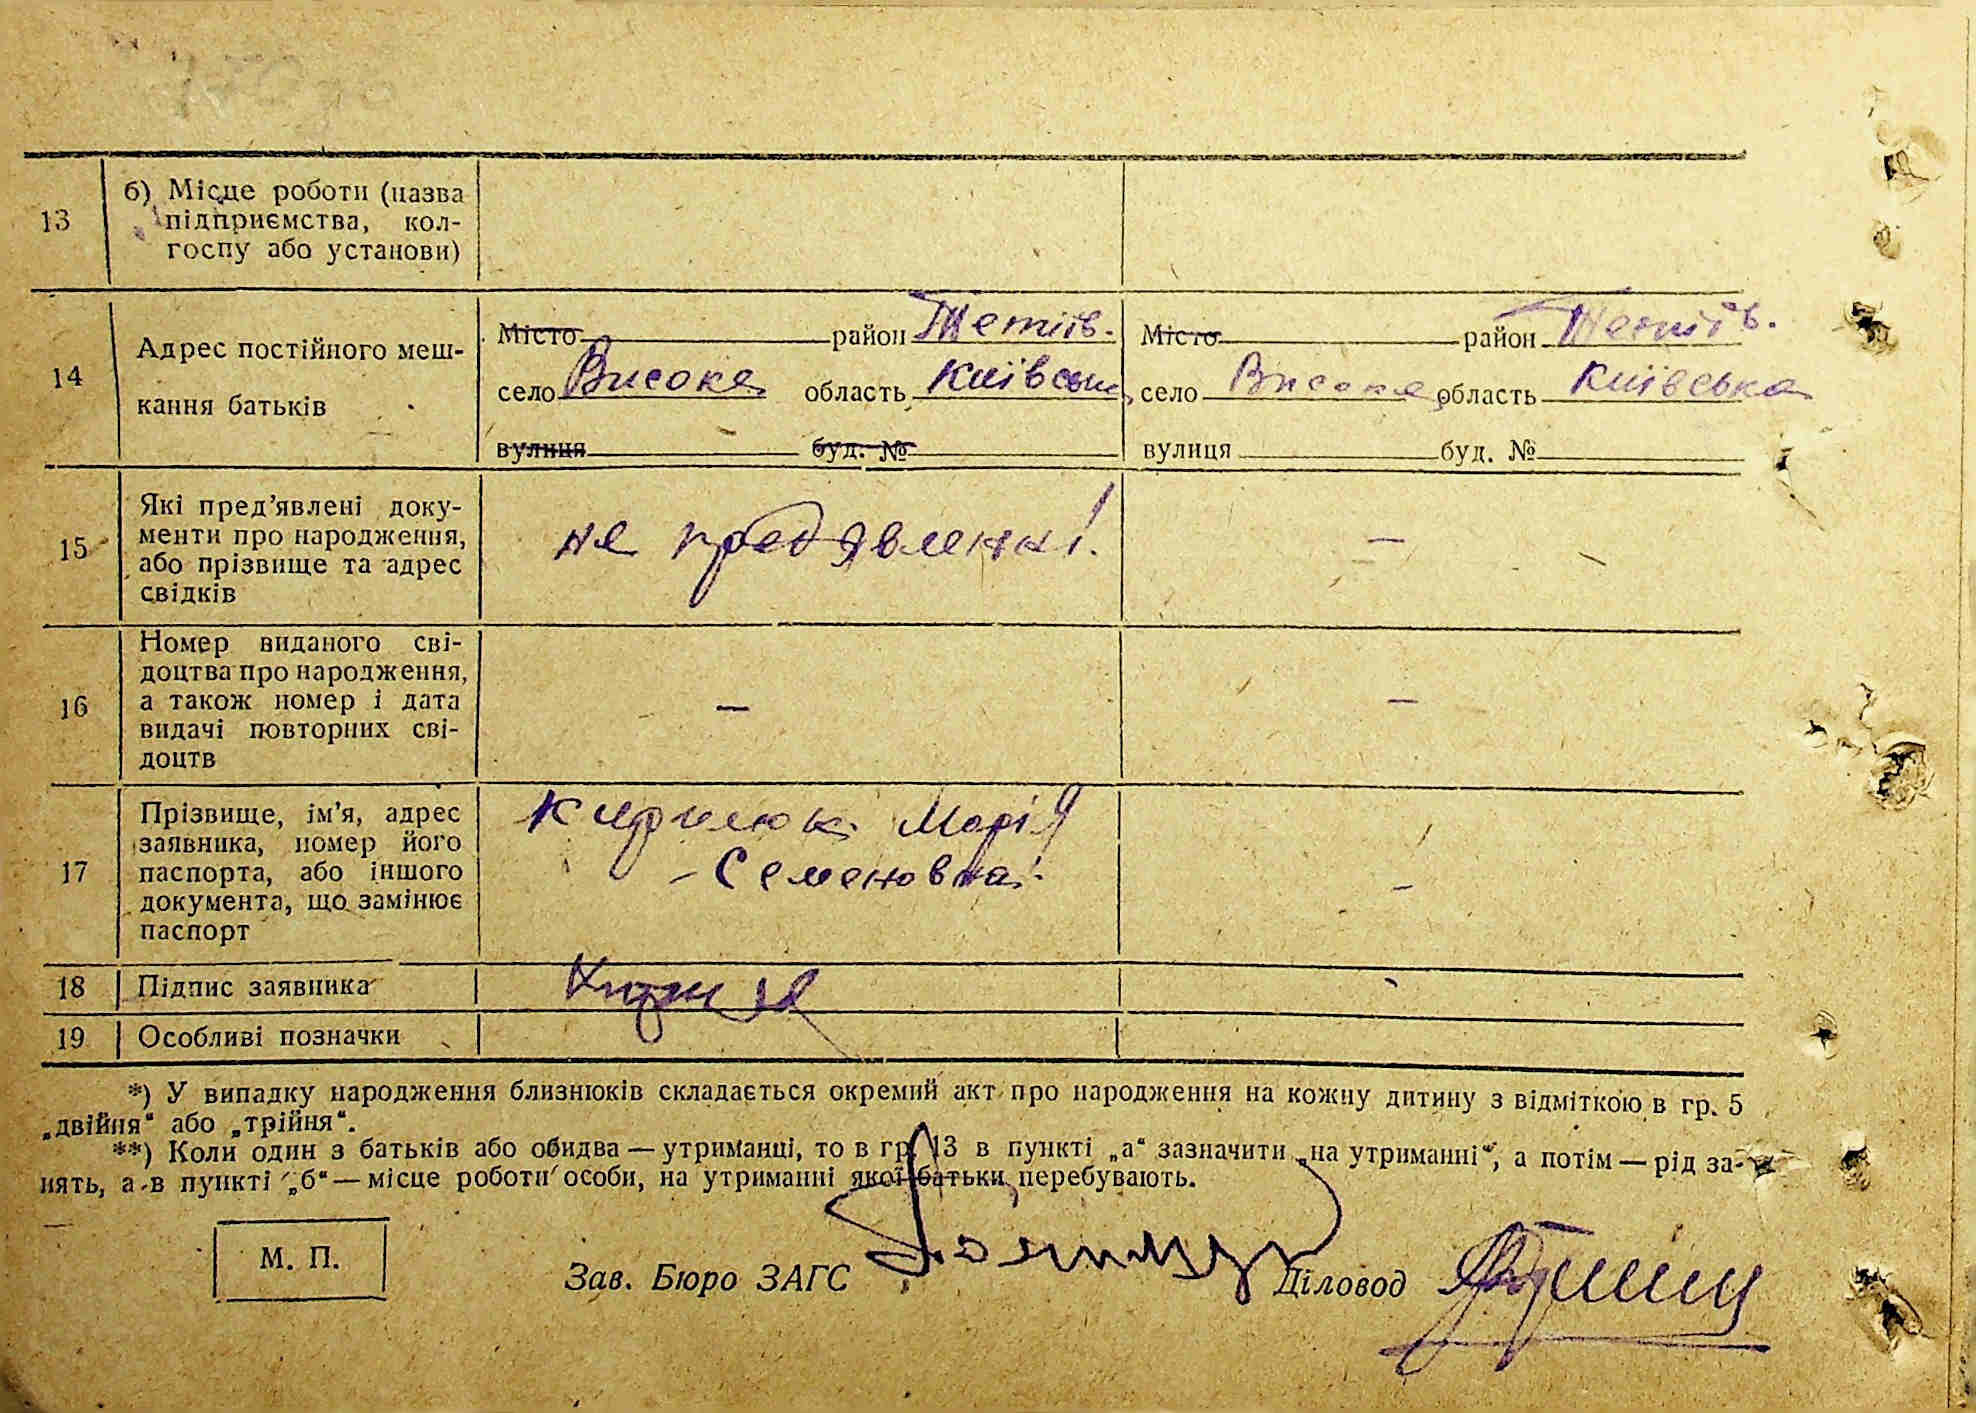 13
б) Місце роботи (назва
підприємства, кол-
госпу або установи)
14
Адрес постійного меш-
кання батьків
Місто район Тетіїв.
село Високе область Київськ
вулиця буд. №
Місто район Тетіїв.
село Високе область Київська
вулиця буд. №
15
Які пред’явлені доку-
менти про народження,
або прізвище та адрес
свідків
не предявленні.
—
16
Номер виданого сві-
доцтва про народження,
а також номер і дата
видачі повторних сві-
доцтв
—
—
17
Прізвище, ім’я, адрес
заявника, номер його
паспорта, або іншого
документа, що замінює
паспорт
Кирилюк Марія
Семеновна.
—
18
Підпис заявника
19
Особливі позначки
*) У випадку народження близнюків складається окремий акт про народження на кожну дитину з відміткою в гр. 5
„двійня“ або „трійня“.
**) Коли один з батьків або обидва — утриманці, то в гр. 13 в пункті „а“ зазначити „на утриманні“, а потім — рід за-
нять, а в пункті „б“ — місце роботи особи, на утриманні якої батьки перебувають.
М. П.
Зав. Бюро ЗАГС
Діловод